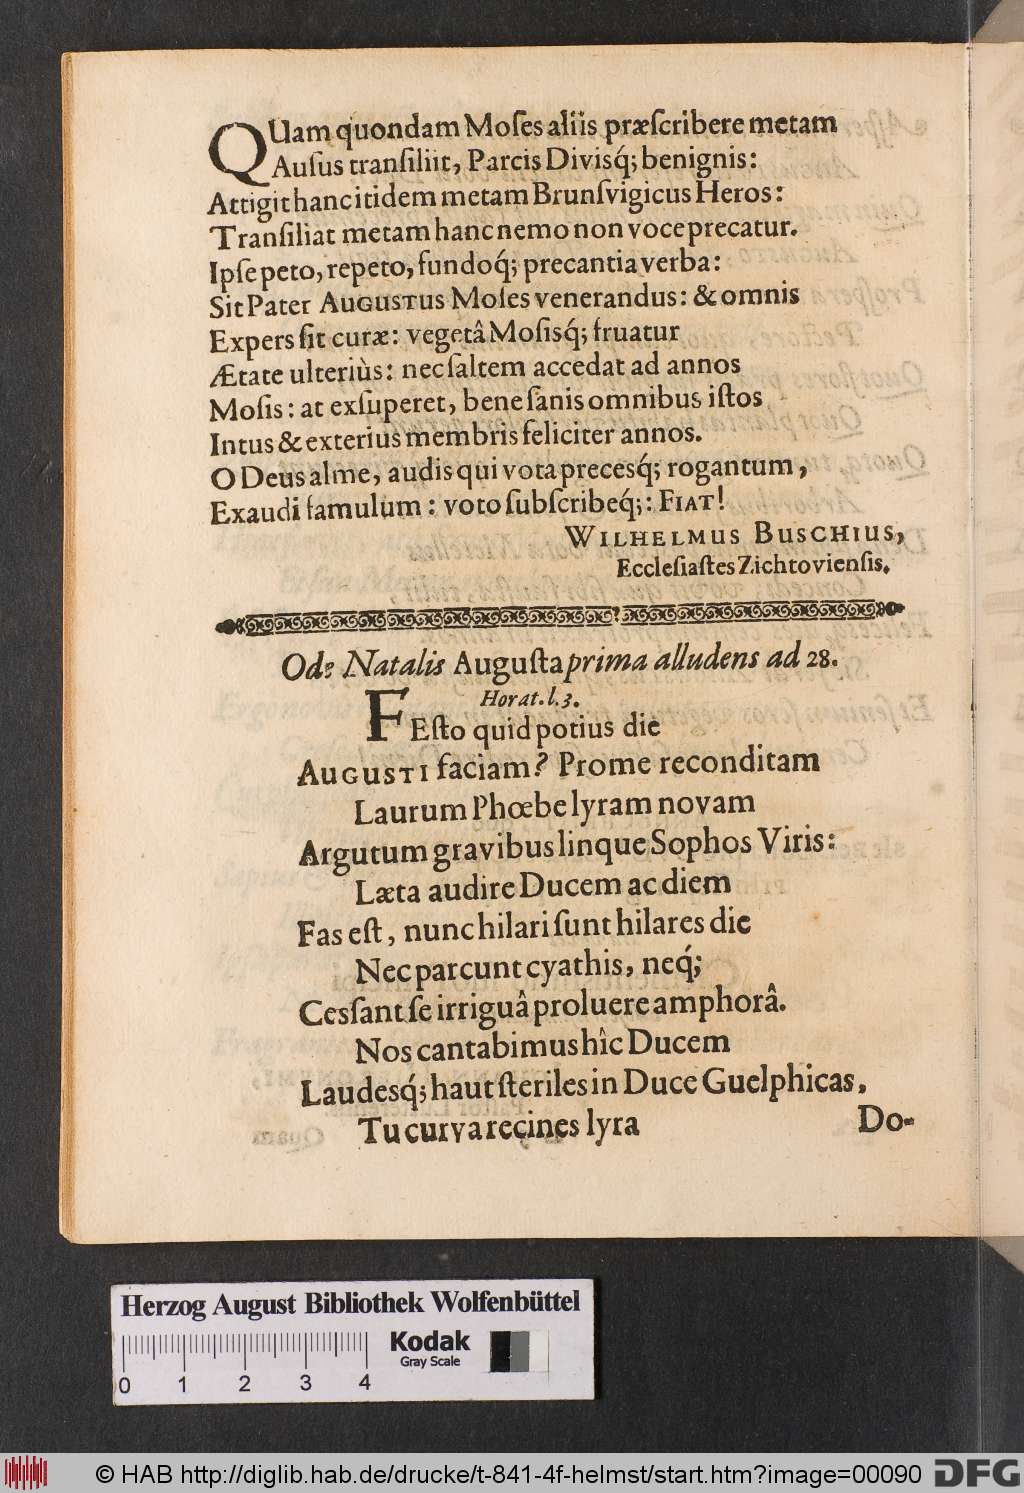 QUam quondam Moſes aliis præſcribere metam
Auſus tranſiliit, Parcis Divisq́; benignis:
Attigit hanc itidem metam Brunſvigicus Heros:
Tranſiliat metam hanc nemo non voce precatur.
Ipſe peto, repeto, fundoq́; precantia verba:
Sit Pater AUGUSTUS Moſes venerandus: & omnis
Expers ſit curæ: vegetâ Moſisq́; fruatur
Ætate ulteriùs: nec ſaltem accedat ad annos
Moſis: at exſuperet, bene ſanis omnibus iſtos
Intus & exterius membris feliciter annos.
O Deus alme, audis qui vota precesq́; rogantum,
Exaudi famulum: voto ſubſcribeq́;: FIAT!
WILHELMUS BUSCHIUS,
Eccleſiaſtes Zichtovienſis.
Ode Natalis Auguſta prima alludens ad 28.
Horat. l. 3.
FEſto quid potius die
AUGUSTI faciam? Prome reconditam
Laurum Phœbe lyram novam
Argutum gravibus linque Sophos Viris:
Læta audire Ducem ac diem
Fas eſt, nunc hilari ſunt hilares die
Nec parcunt cyathis, neq́;
Ceſſant ſe irriguâ proluere amphorâ.
Nos cantabimus hîc Ducem
Laudesq́; haut ſteriles in Duce Guelphicas,
Tu curva recines lyra
Do-
Herzog August Bibliothek Wolfenbüttel
Kodak
Gray Scale
0 1 2 3 4
© HAB http://diglib.hab.de/drucke/t-841-4f-helmst/start.htm?image=00090
DFG